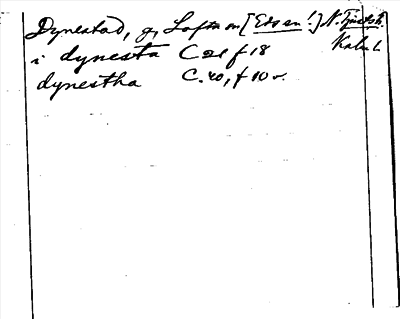 Dynestad, g, Lofta sn [Edsen!] N. Tjust h.
Kalm. L
i dynesta C 21 f 18
dynestha C. 20, f 10 v.